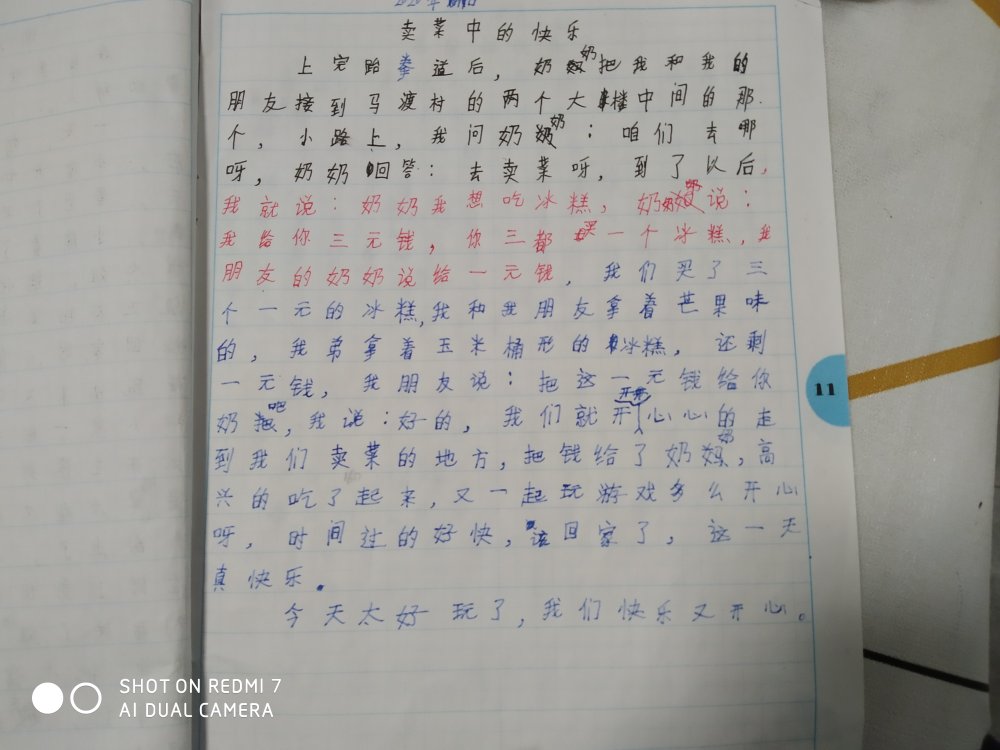 卖菜中的快乐
上完跆拳道后，奶奶把我和我的
朋友接到马渡村的两个大楼中间的那
个，小路上，我问奶奶：咱们去哪
呀，奶奶回答：去卖菜呀，到了以后，
我就说：奶奶我想吃冰糕，奶奶说：
我给你三元钱，你三都买一个冰糕，我
朋友的奶奶说给一元钱，我们买了三
个一元的冰糕，我和我朋友拿着芒果味
的，我弟拿着玉米桶形的冰糕，还剩
一元钱，我朋友说：把这一元钱给你
奶吧，我说：好的，我们就开开心心的走
到我们卖菜的地方，把钱给了奶奶，高
兴的吃了起来，又一起玩游戏多么开心
呀，时间过的好快，该回家了，这一天
真快乐。
今天太好玩了，我们快乐又开心。
11
SHOT ON REDMI 7
AI DUAL CAMERA